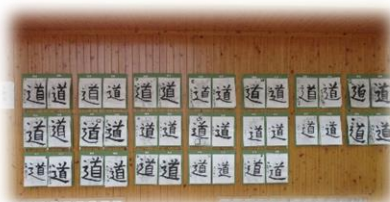 道 道 道 道 道 道 道 道 道 道 道 道 道 道
道 道 道 道 道 道 道 道 道 道 道 道 道 道
道 道 道 道 道 道 道 道 道 道